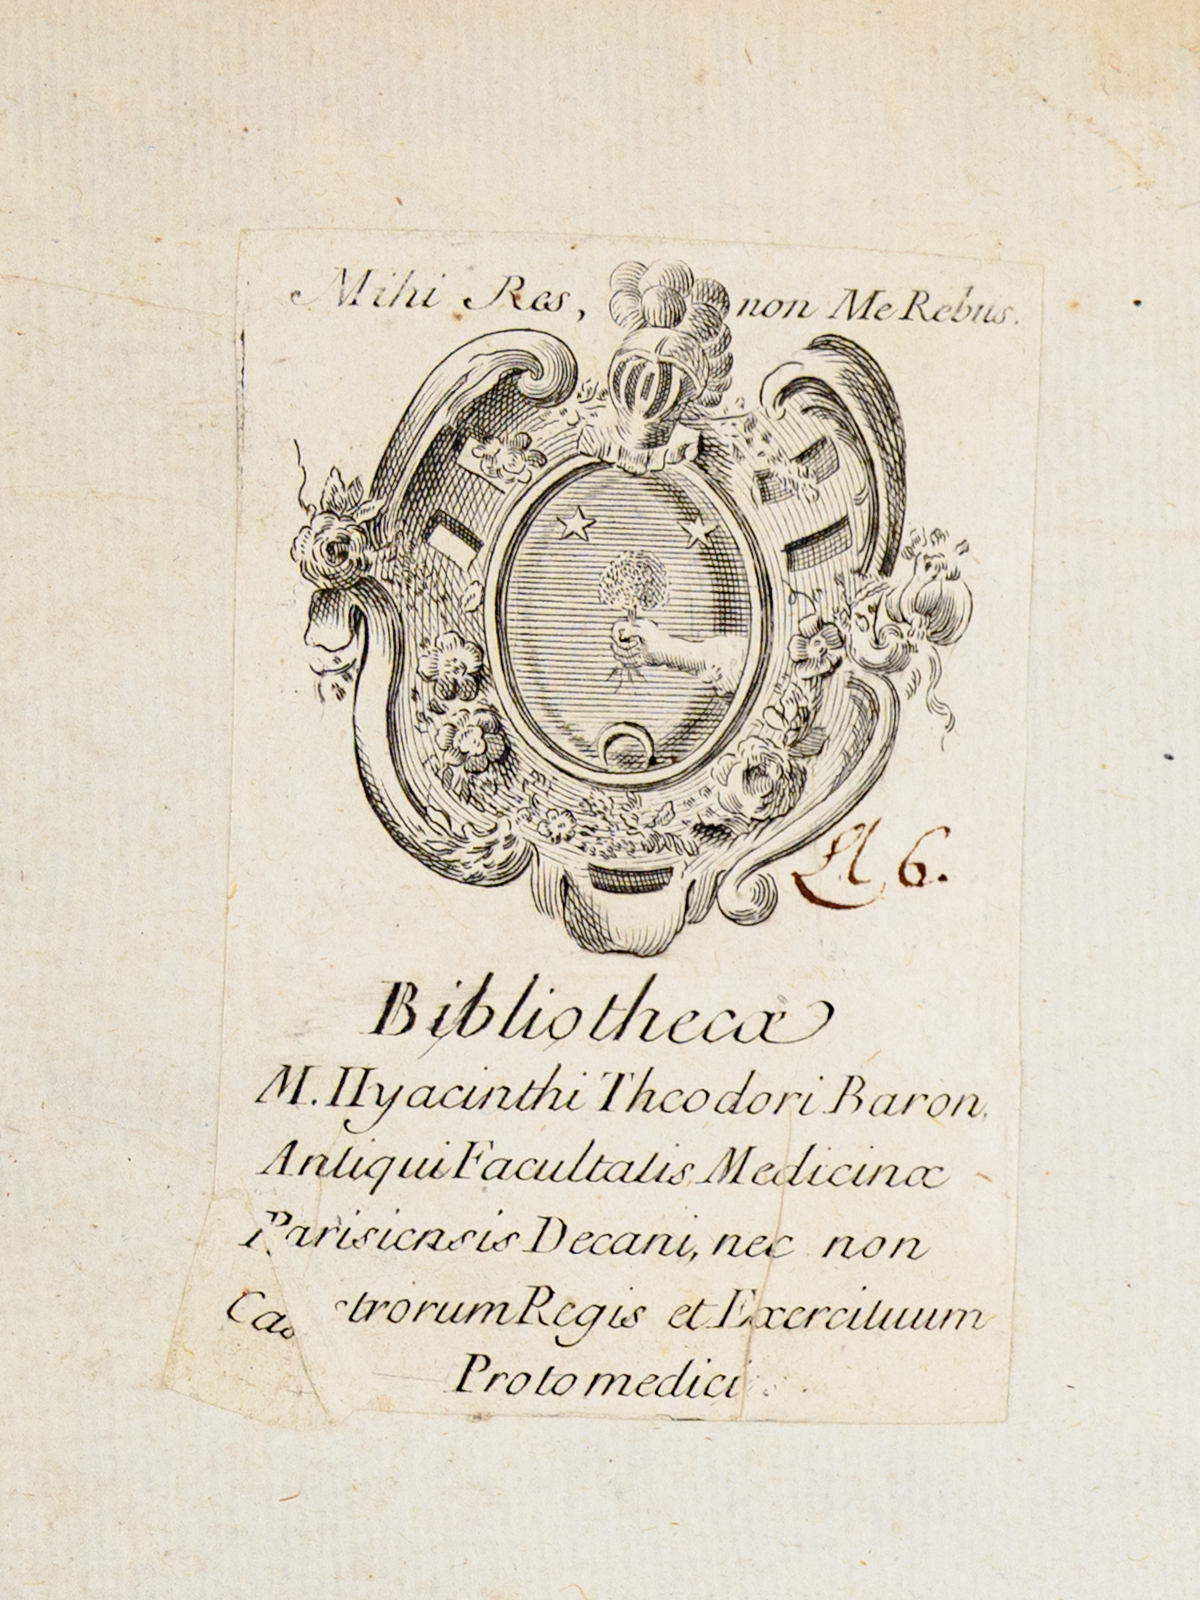 Mihi Res, non Me Rebus.
6.
Bibliothecæ
M. Hyacinthi Theodori Baron,
Antiqui Facultatis Medicinæ
Parisiensis Decani, nec non
Ca trorum Regis et Exercituum
Protomedici